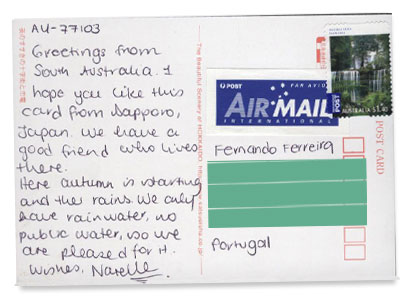 AU-77103
Greetings from
South Australia. I
hope you like this
card from Sapporo,
Japan. We have a
good friend who lives
there.
Here autumn is starting
and the rains. We only
have rainwater, no
public water, so we
are pleased for it.
Wishes, Narelle.
The Beautiful Scenery of HOKKAIDO
POST
PAR AVION
AIR MAIL
INTERNATIONAL
POST
AUSTRALIA $1.40
POST CARD
Fernando Ferreira
Portugal